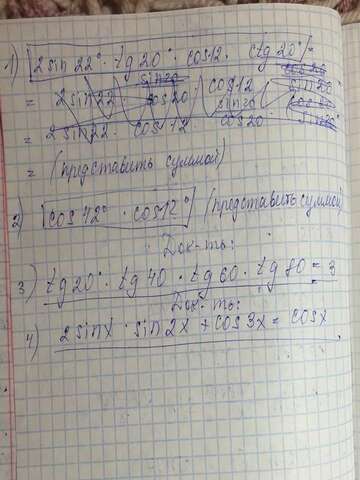 1) 2sin22° · tg20° · cos12 · ctg20° =
= 2sin22 · sin20 cos20 · cos12 cos20 sin20
= 2sin22 · cos12
= (представить суммой)
2) cos42° · cos12° (представить суммой)
Док-ть:
3) tg20° · tg40 · tg60 · tg80 = 3
Док-ть:
4) 2sinx · sin2x + cos3x = cosx